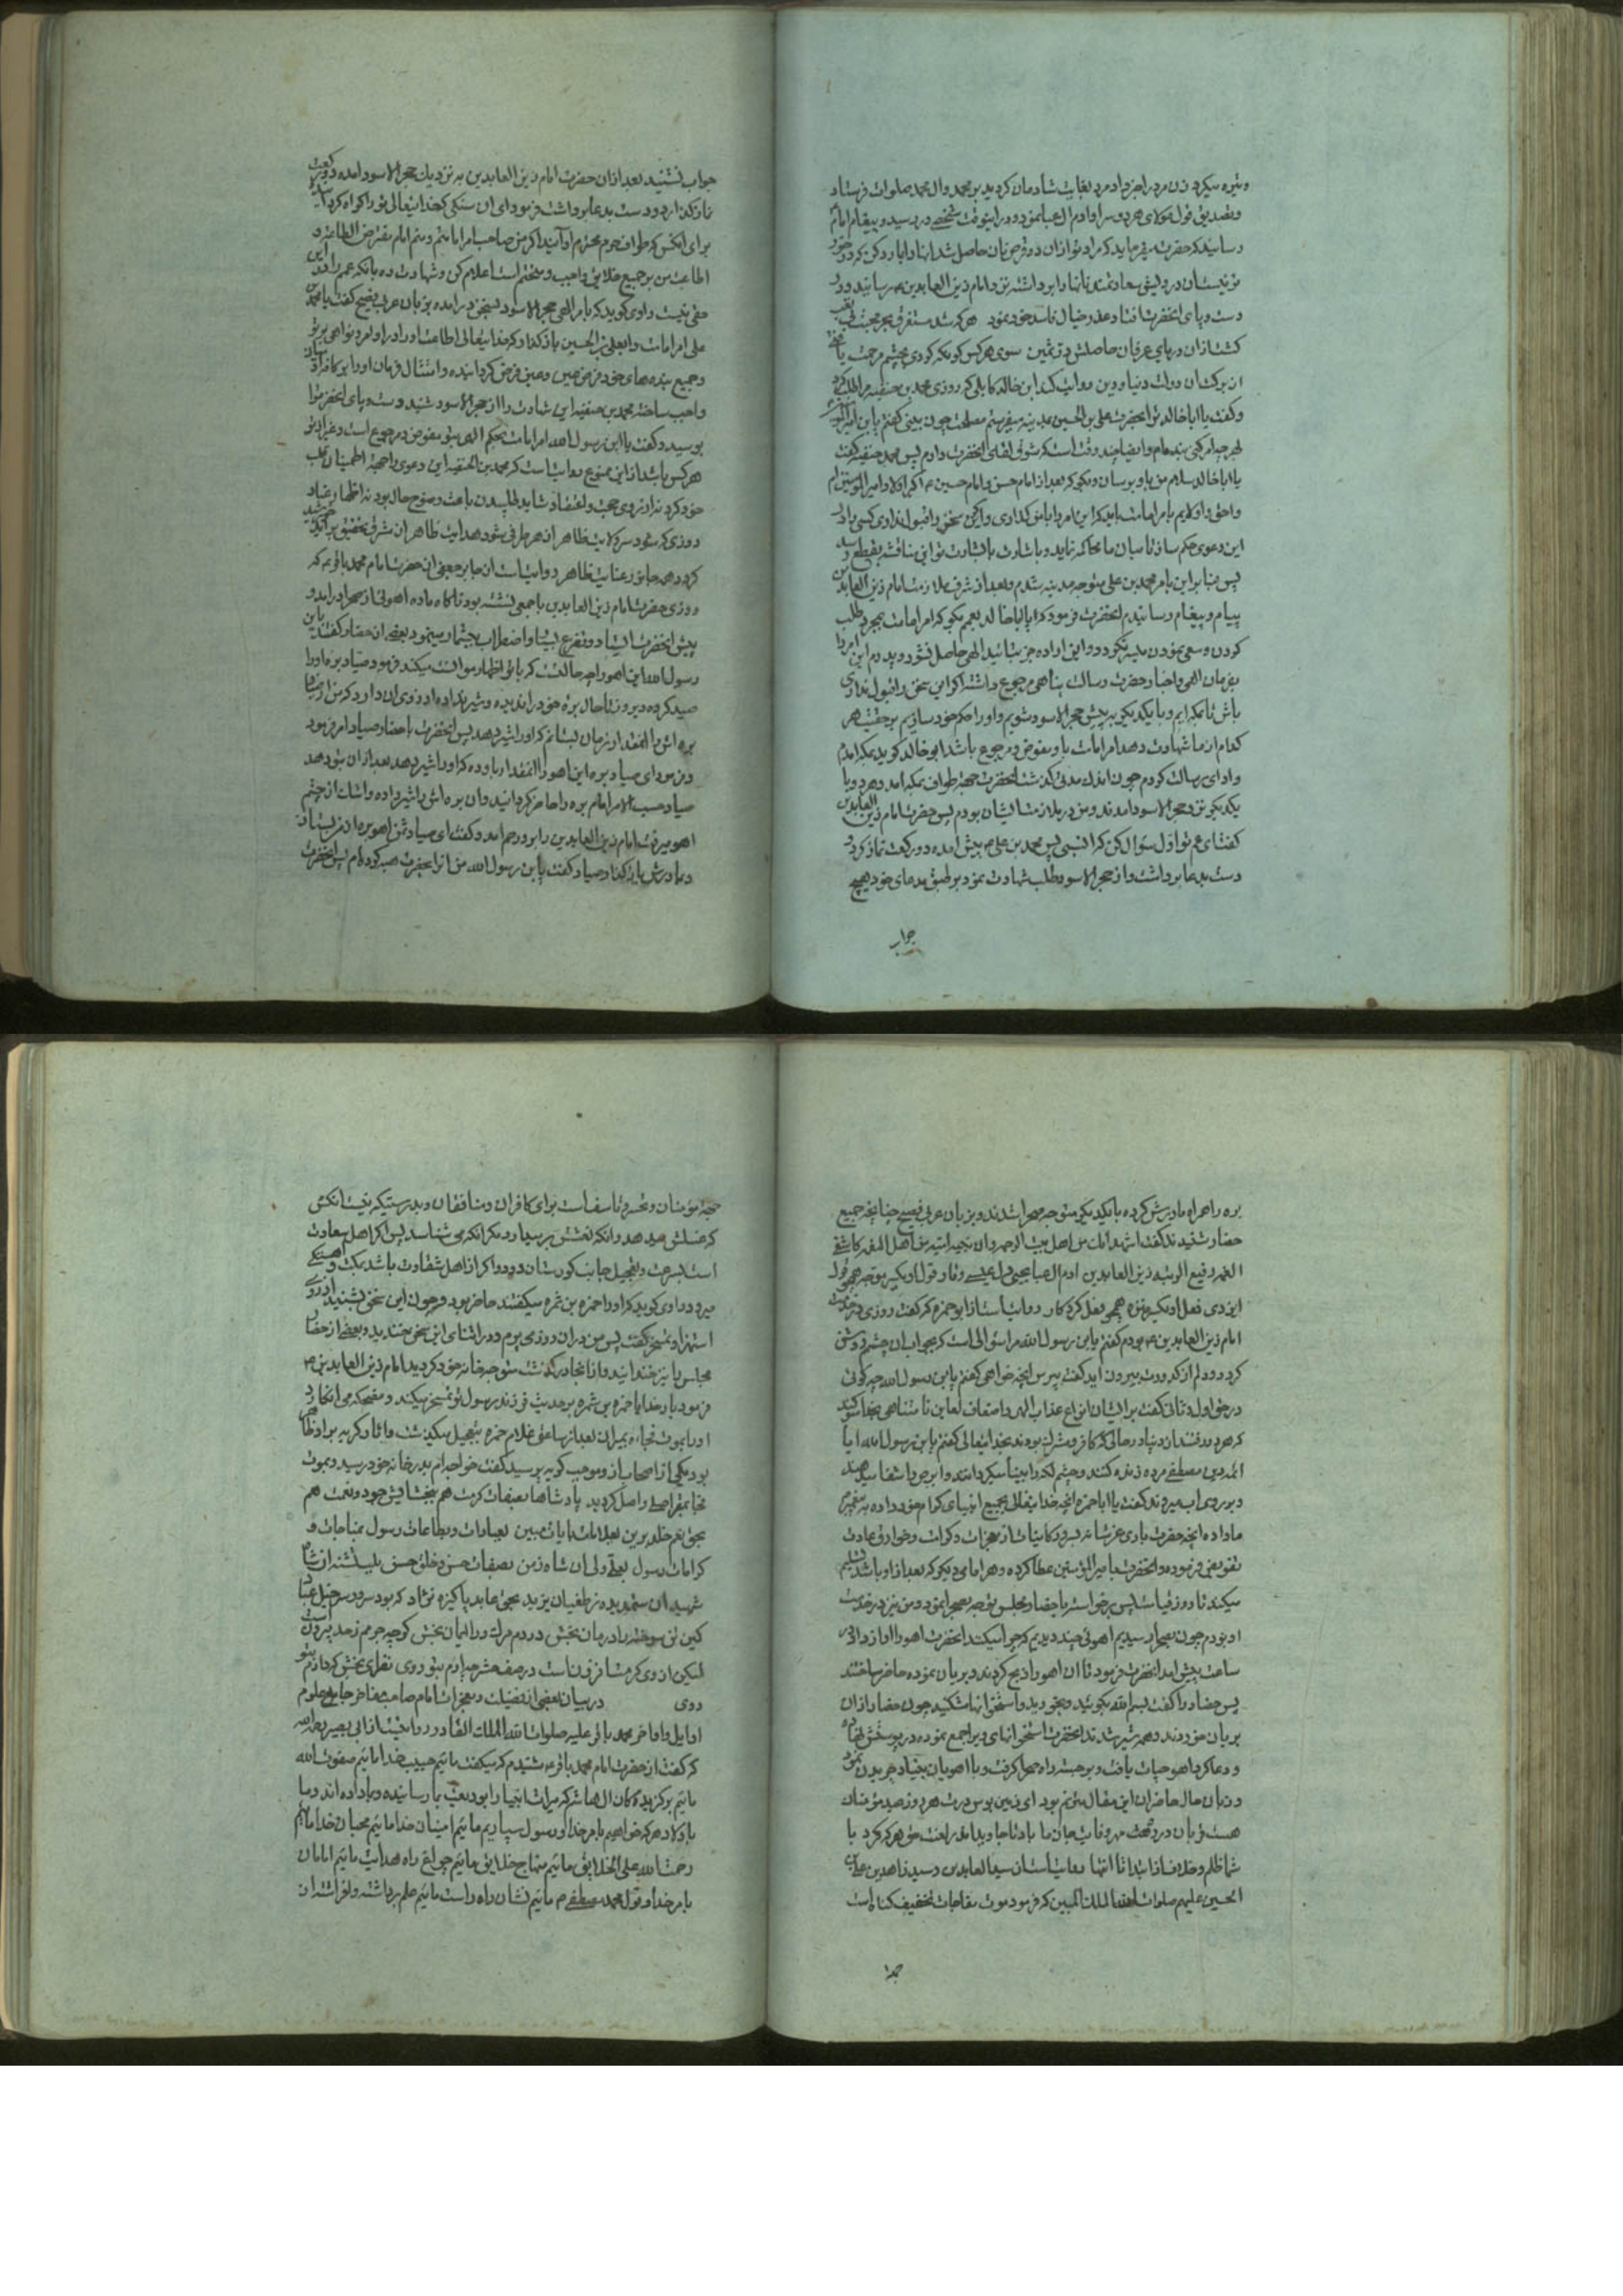 و تیره میکرد زن مرد را خبر داد مرد بغایت شادمان کردید بر محمد وال محمد صلوات فرستاد
و تصدیق قول مولای هر دو سرا و ادم ال عبا نمود و در اینوقت شخصی در رسید و پیغام امام
رسانید که حضرت میفرماید که مراد تو از ان دو قرص نان حاصل شد انها را بما رد کن که در خور
تو نیست ان درویش سعادتمند نانها را برداشته نزد امام زین العابدین رسانید و در
دست و پای انحضرت افتاد و عذر خیال فاسد خود نمود هر که شد مستغرق بحر محبت
کشت از ان دریای عرفان حاصلش در ثمین سوی هر کس کو نکه کردی بچشم مرحمت
از برکت ان دولت دنیا و دین روایت کند ابن خالد کابلی که روزی محمد بن حنفیه مرا طلب کرد
و کفت یا اباخالد نزد انحضرت علی بن الحسین بمدینه میفرستم مصلحت چون بینی کفتم یا بن امیرالمؤمنین
بهر چه امر کنی بنده ام و ایضا چند وقت است که شوق لقای انحضرت دارم پس محمد حنفیه کفت
یا اباخالد سلام من باو برسان و بکو که بعد از امام حسن و امام حسین اکبر اولاد امیر المؤمنین ام
و احق و اولایم بامر امامت باید که این امر را بامن کذاری و اکر این سخن را قبول نداری کسی را در
این دعوی حکم ساز تا میان ما محاکمه نماید و باشارت با بشارت تو این مناقشه بقطع رسد
پس بنا بر این بامر محمد بن علی متوجه مدینه شدم و بعد از شرف ملازمت امام زین العابدین
پیام و پیغام رسانیدم انحضرت فرمود که ای اباخالد بعمم بکو که امر امامت بمجرد طلب
کردن و سعی نمودن میسر نکردد و این اراده جز بتائید الهی حاصل نشود و پدرم این امر را
بفرمان الهی و اخبار حضرت رسالت پناهی بمن رجوع داشته اکر این سخن را قبول نداری
باش تا بمکه ایم و با یکدیکر به پیش حجر الاسود شویم و او را حکم خود سازیم بر حقیت هر
کدام از ما شهادت دهد امر امامت باو مفوض و مرجوع باشد ابو خالد کوید بمکه امدم
و ادای رسالت کردم چون اندک مدتی کذشت انحضرت جهة طواف بمکه امد و هر دو با
یکدیکر نزد حجر الاسود امدند و من در ملازمت ایشان بودم پس حضرت امام زین العابدین
کفت ای عم تو اول سؤال کن که انسبی پس محمد بن علی پیش امده دو رکعت نماز کرد و
دست بدعا برداشت و از حجر الاسود طلب شهادت نمود بر طبق مدعای خود هیچ
جواب
جواب نشنید بعد از ان حضرت امام زین العابدین به نزدیک حجر الاسود امده دو رکعت
نماز کذارد و دست بدعا برداشت فرمود ای ان سنکی که خدایتعالی تو را کواه کردانیده
برای انکس که طواف حرم محترم او آیند اکر من صاحب امر امامتم و منم امام مفترض الطاعه و
اطاعت من بر جمیع خلایق واجب و متحتم است اعلام کن و شهادت ده بانکه عمم را در این
حقی نیست راوی کوید که بامر الهی حجر الاسود بسخن در امده بزبان عربی فصیح کفت یا محمد بن
علی امر امامت را بعلی بن الحسین باز کذار که خدایتعالی اطاعت او را در اوامر و نواهی بر تو
و جمیع بنده های خود فرض عین و عین فرض کردانیده و امتثال فرمان او را بر کافه
واجب ساخته محمد بن حنفیه این شهادت را از حجر الاسود شنید دست و پای انحضرت را
بوسید و کفت یا ابن رسول الله امر امامت بحکم الهی بتو مفوض و مرجوع است و غیر از تو
هر کس باشد از این ممنوع روایت است که محمد بن الحنفیه این دعوی را جهة اطمینان قلب
خود کرد نه از روی حجت و اعتقاد شاید طلبیدن باعث وضوح حال بود نه اظهار عناد
روزی که شود سر ولایت ظاهر از هر طرفی شود هدایت ظاهر از شرق حقیق بر آید
کردد همه جا نور عنایت ظاهر روایت است از جابر جعفی از حضرت امام محمد باقر که
روزی حضرت امام زین العابدین با جمعی نشسته بود ناکاه ماده اهوئی از صحرا در امد و
پیش انحضرت ایستاد و تضرع بسیار و اضطراب بیشمار مینمود بعضی از حضار کفتند یا بن
رسول الله این اهو را چه حالتست که با تو اظهار موانست میکند فرمود صیاد بره او را
صید کرده و دیروز تا حال بره خود را ندیده و شیر نداده ارزوی ان دارد که من از صیاد
بره اش را انمقدار زمان بستانم که او را شیر دهد پس انحضرت باحضار صیاد امر فرمود
و فرمود ای صیاد بره این اهو را انمقدار باو ده که او را شیر دهد بعد از ان بتو دهد
صیاد حسب الامر امام بره را حاضر کردانید و ان بره اش را شیر داده و اشک از چشم
اهو میرفت امام زین العابدین را بر او رحم امد و کفت ای صیاد ثمن اهو بره از من بستان
و مادرش باز کذار صیاد کفت یا بن رسول الله من انرا بحضرت هبه کرده ام پس انحضرت
بره را همراه مادرش کرده با یکدیکر متوجه صحرا شدند و بزبان عربی فصیح چنانچه جمیع
حضار شنیدند کفت اشهد انک من اهل بیت الرحمه و ان بنی امیه من اهل اللعنه کاشف
الغمه رفیع الرتبه زین العابدین ادم ال عبا یحیی دل عیسی وقار قول او یکسر موجه همچو قول
ایزدی فعل او یکسر منزه همچو فعل کردکار روایت است از ابو حمزه که کفت روزی در خدمت
امام زین العابدین بودم کفتم یا بن رسول الله مرا سؤالی است که بجواب ان چشم روشن
کردد و دلم از کدورت بیرون اید کفت بپرس انچه خواهی کفتم یا بن رسول الله چه کوئی
در حق اول و ثانی کفت بر ایشان انواع عذاب الهی و اصناف لعاین نامتناهی بخدا سوکند
که هر دو رفتند از دنیا در حالی که کافر و مشرک بودند بخدایتعالی کفتم یا بن رسول الله ایا
ائمه دین مصطفی مرده زنده کنند و چشم لکه را بینا میکردانند و ابرص را شفا میدهند
و بر روی اب میروند کفت یا اباحمزه انچه خدایتعالی بجمیع انبیای کرام خود داده به پیغمبر
ما داده انچه حضرت باری عز شانه بسرور کاینات از معجزات و کرامات و خوارق عادت
تفویض فرموده و انحضرت بامیر المؤمنین عطا کرده و هر امامی دیکر که بعد از او باشد تسلیم
میکند تا روز قیامت پس برخواسته با حضار مجلس توجه بصحرا نمود و من نیز در خدمت
او بودم چون بصحرا رسیدیم اهوئی چند دیدیم که چرا میکنند انحضرت اهو را اواز داد در
ساعت پیش امد انحضرت فرمود تا ان اهو را ذبح کردند و بریان نموده حاضر ساختند
پس حضار را کفت بسم الله بکوئید و بخورید و استخوانها مشکنید چون حضار از ان
بریان خوردند و همه سیر شدند انحضرت استخوانهای ویرا جمع نموده در پوستش نهاده
و دعا کرد اهو حیات یافت و برجسته راه صحرا کرفت و با اهویان بنیاد چریدن نمود
و زبان حال حاضران این مقال مترنم بود ای زمین بوس درت هر روز صد مؤمنان
هست قربان در رهت مهر وفایت جان ما باد تا جاوید اندر لعنت حق هر که کرد با
شما ظلم و خلاف از ابتدا تا انتها روایت است از سید العابدین و سید زاهدین علی بن
الحسین علیهم صلوات الله الملک المبین که فرمود موت مفاجات تخفیف کناه است
جهة
جهة مؤمنان و تحسر و تاسف است برای کافران و منافقان و بدرستیکه نیست انکس
که غسلش میدهد و انکه نعشش بر میدارد مکر انکه می شناسد پس اکر اهل سعادت
است بسرعت و تعجیل جانب کورستان رود و اکر از اهل شقاوت باشد بمکث و اهستکی
میرود راوی کوید که او را حمزه بن ثمره میکفتند حاضر بود و چون این سخن بشنید از روی
استهزاء و تمسخر کفت پس من در ان روزی بودم در اثنای این سخن بخندید و بعضی از حضار
مجلس را نیز خندانید و از انجا درکذشت متوجه خانه خود کردید امام زین العابدین
فرمود بار خدایا حمزه بن ثمره بر حدیث فرزند رسول تو تمسخر میکند و مضحکه می انکارد
او را بموت فجاءه بمیران بعد از ساعتی غلام حمزه بتعجیل میکذشت و اثار کریه بر او ظاهر
بود یکی از اصحاب از و موجب کریه پرسید کفت خواجه ام بدر خانه خود رسید و بموت
فجا بمقر اصلی واصل کردید پادشاها بصفات کرمت هم ببخشایش جود و نعمت هم
بحق نعم خلد برین بعلامات بایات مبین بعبادات و بطاعات رسول بمناجات و
کرامات رسول بعلی ولی ان شاه زمن بصفات حسن و خلق حسن
شهید ان ستمدیده ز طغیان یزید بحق عابد پاکیزه نژاد که بود سرور سرخیل عباد
کین تن سوخته را درمان بخش در دم مرک ورا ایمان بخش کرچه جرمم ز حد بیرون است
لیکن از وی کرمت افزونست در صف حشر چه ارم بتو روی نظری بخش که دارم بتو
روی در بیان بعضی از فضیلت و معجزات امام صاحب مفاخر جامع علوم
اوایل و اواخر محمد باقر علیه صلوات الله الملک القادر روایتست از ابی بصیر رحمه الله
که کفت از حضرت امام محمد باقر شنیدم که میکفت مائیم حبیب خدا مائیم صفوت الله
مائیم برکزیدکان اله ما شرکه میراث انبیا را بودیعت بما رسانیده و بما داده اند و ما
باولاد هر که خواهیم بامر خدا و رسول سپاریم مائیم امینان خدا مائیم محبان خدا مائیم
رحمت الله علی الخلایق مائیم منهاج خلایق مائیم چراغ راه هدایت مائیم امامان
بامر خدا و قول محمد مصطفی مائیم نشان راه راست مائیم علم برداشته و افراشته ان